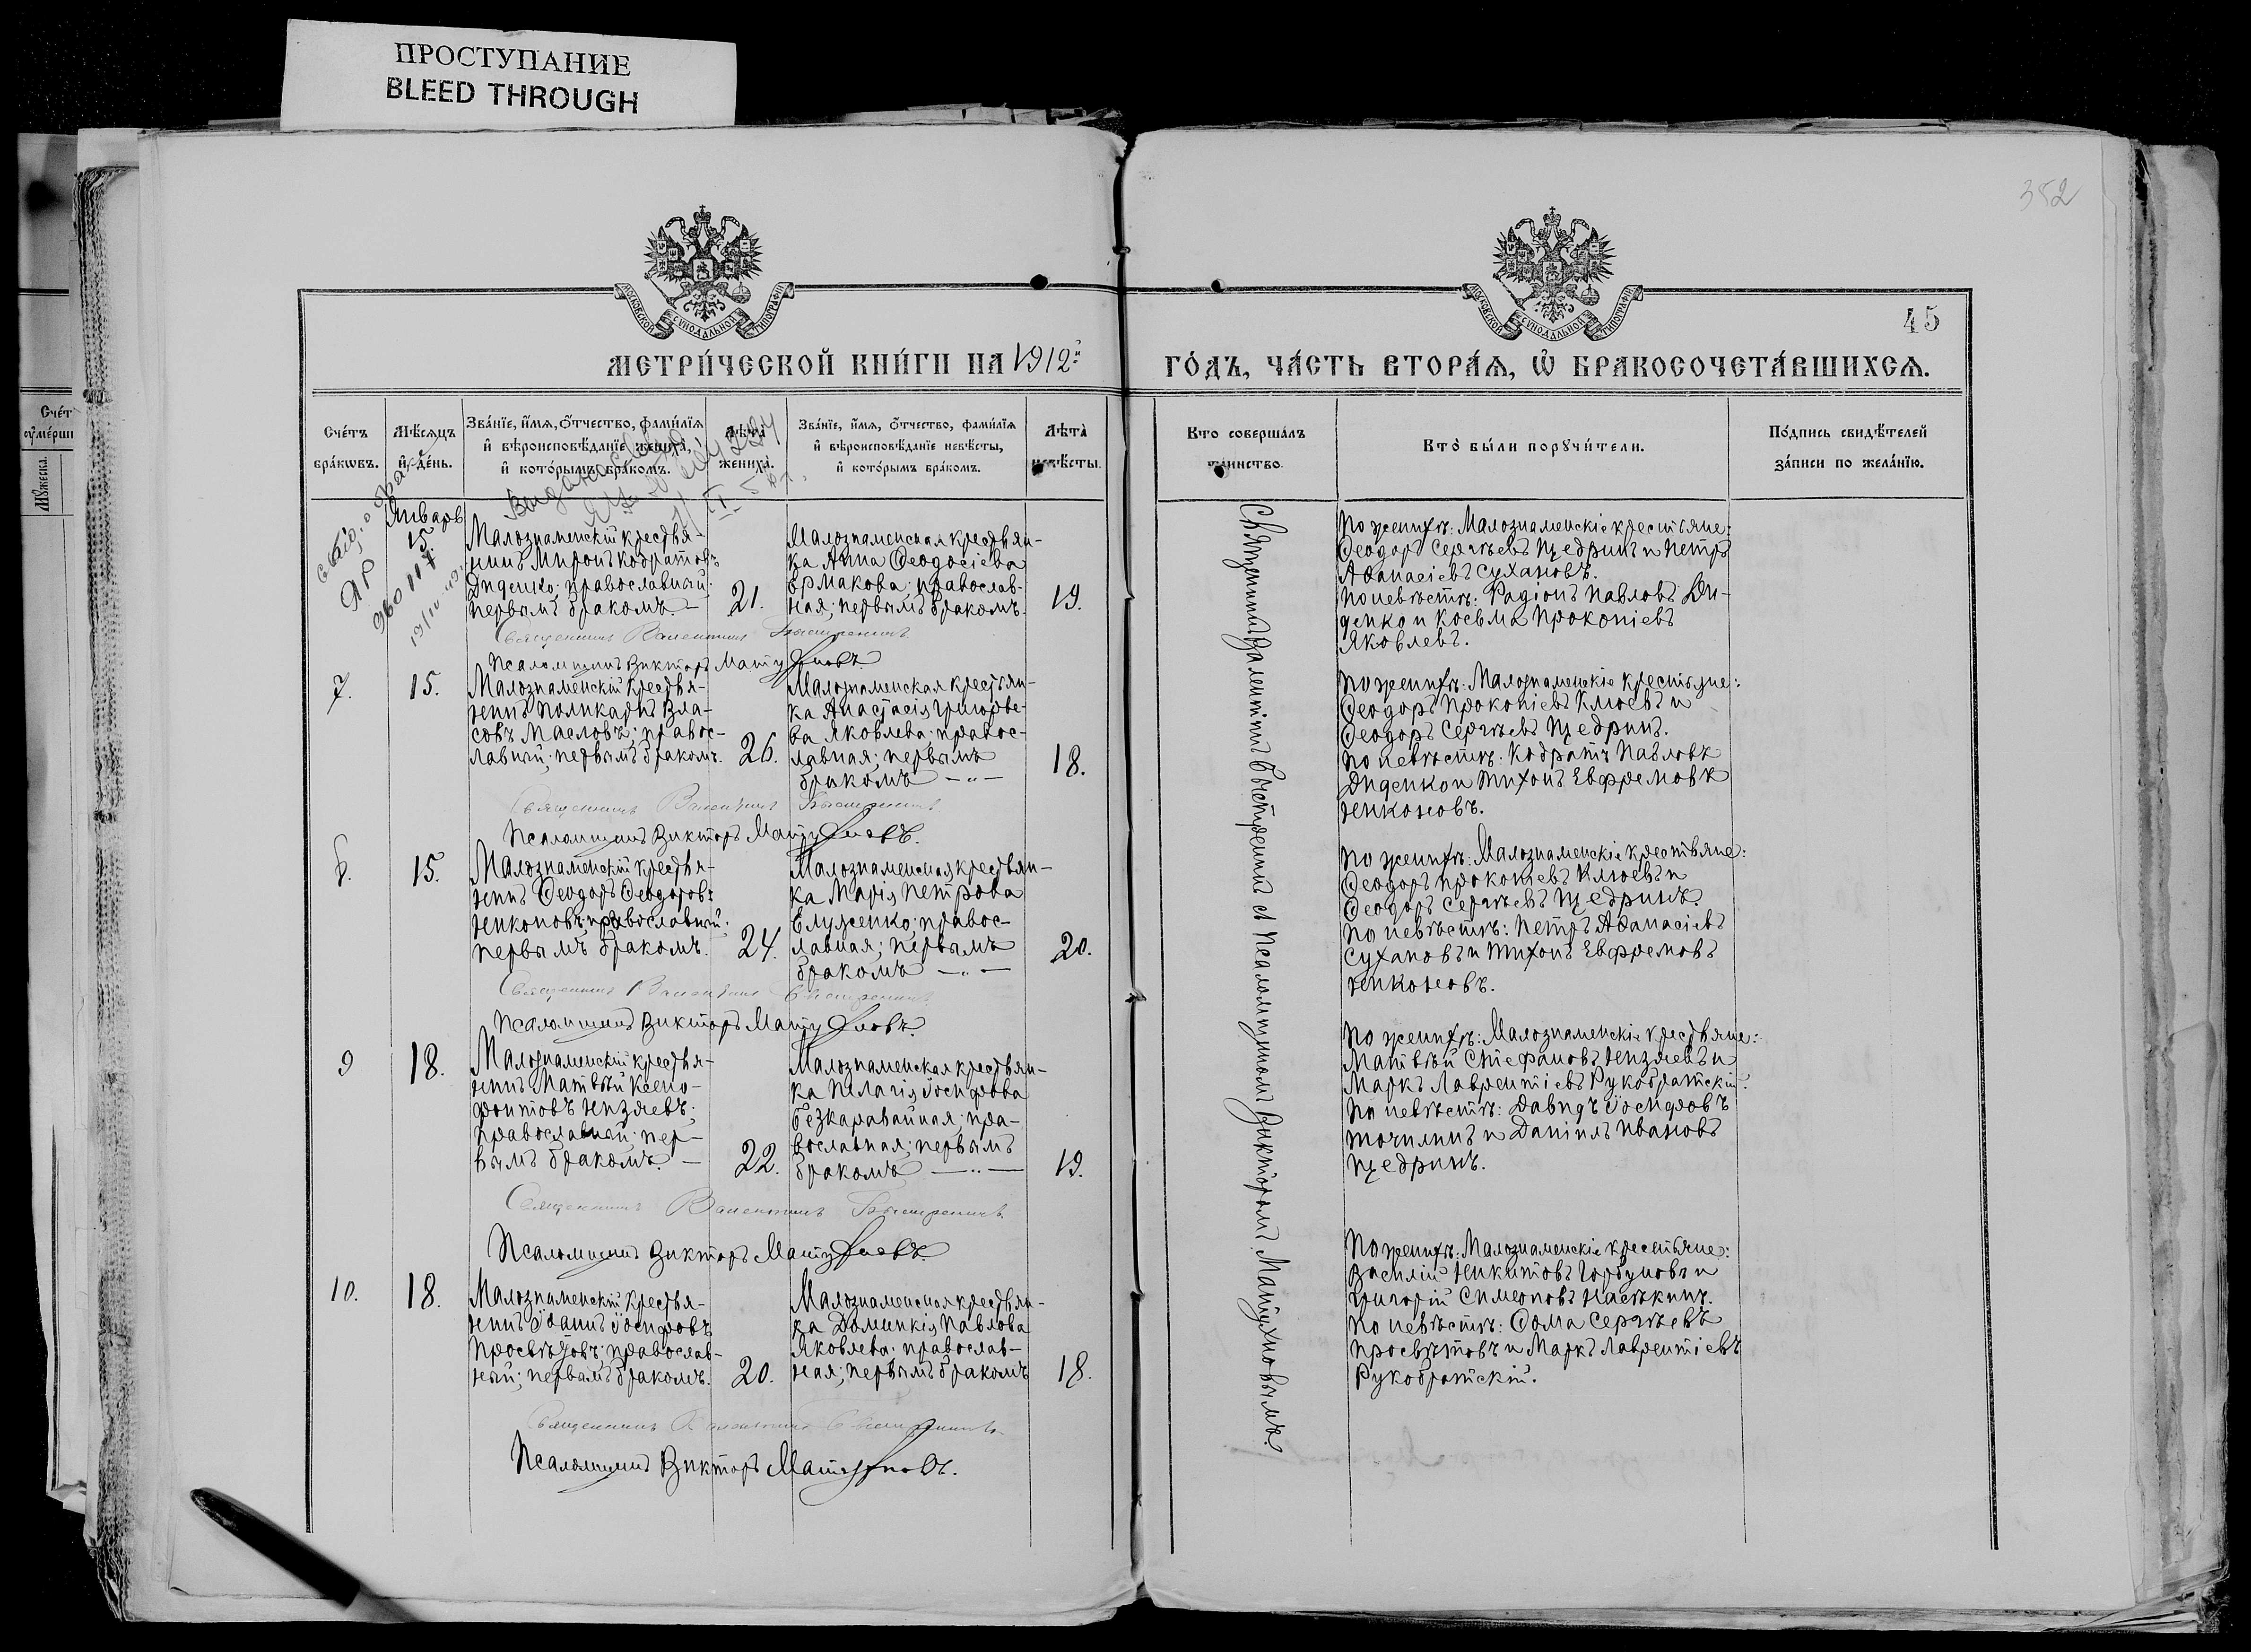 ПРОСТУПАНИЕ
BLEED THROUGH
352
45
МОСКОВСКОЙ СѴНОДАЛЬНОЙ ТИПОГРАФІИ
МОСКОВСКОЙ СѴНОДАЛЬНОЙ ТИПОГРАФІИ
МЕТРИ́ЧЕСКОЙ КНИ́ГИ НА 1912й
ГО́ДЪ, ЧА́СТЬ ВТОРА́Ѧ, Ѡ҆ БРАКОСОЧЕТА́ВШИХСѦ.
Сче́тъ
бра́кωвъ.
Мѣ́сѧцъ
и҆ де́нь.
Зва́нїе, и҆́мѧ, ѻ҆́тчество, фами́лїѧ
и҆ вѣроисповѣ́данїе жениха̀,
и҆ кото́рымъ бра́комъ.
Лѣта̀
жениха̀.
Зва́нїе, и҆́мѧ, ѻ҆́тчество, фами́лїѧ
и҆ вѣроисповѣ́данїе невѣ́сты,
и҆ кото́рымъ бра́комъ.
Лѣта̀
невѣ́сты.
Кто соверша́лъ
та́инство.
Кто̀ бы́ли порꙋчи́тели.
По́дпись свидѣ́телей
за́писи по жела́нїю.
Январь
15
Малознаменскій крестья-
нинъ Миронъ Кодратовъ
Диденко; православный;
первымъ бракомъ. —
21.
Малознаменская крестьян-
ка Анна Ѳеодосіева
Ермакова; православ-
ная; первымъ бракомъ.
19.
По женихѣ: Малознаменскіе крестьяне:
Ѳеодоръ Сергѣевъ Щедринъ и Петръ
Аѳанасіевъ Сухановъ.
По невѣстѣ: Радіонъ Павловъ Ди-
денко и Косьма Прокопіевъ
Яковлевъ.
Священникъ Валентинъ Быстренинъ
Псаломщикъ Викторъ Матухновъ
7.
15.
Малознаменскій крестья-
нинъ Поликарпъ Вла-
совъ Масловъ; правос-
лавный; первымъ бракомъ.
26.
Малознаменская крестьян-
ка Анастасія Григорье-
ва Яковлева; правос-
лавная; первымъ
бракомъ —"—
18.
По женихѣ: Малознаменскіе крестьяне:
Ѳеодоръ Прокопіевъ Клюевъ и
Ѳеодоръ Сергѣевъ Щедринъ.
По невѣстѣ: Кодратъ Павловъ
Диденко и Тихонъ Евфремовъ
Никоновъ.
Священникъ Валентинъ Быстренинъ
Псаломщикъ Викторъ Матухновъ.
8.
15.
Малознаменскій крестья-
нинъ Ѳеодоръ Ѳеодоровъ
Никоновъ; православный;
первымъ бракомъ.
24.
Малознаменская крестьян-
ка Марія Петрова
Елуженко; правос-
лавная; первымъ
бракомъ —"—
20.
По женихѣ: Малознаменскіе крестьяне:
Ѳеодоръ Прокопіевъ Клюевъ и
Ѳеодоръ Сергѣевъ Щедринъ.
По невѣстѣ: Петръ Аѳанасіевъ
Сухановъ и Тихонъ Евфремовъ
Никоновъ.
Священникъ Валентинъ Быстренинъ
Псаломщикъ Викторъ Матухновъ.
9
18.
Малознаменскій крестья-
нинъ Матвѣй Ксено-
фонтовъ Низяевъ;
православный; пер-
вымъ бракомъ. —
22.
Малознаменская крестьян-
ка Пелагія Іосифова
Безкаравайная; пра-
вославная; первымъ
бракомъ —"—
19.
По женихѣ: Малознаменскіе крестьяне:
Матвѣй Стефановъ Низяевъ и
Маркъ Лаврентіевъ Рукобратскій.
По невѣстѣ: Давидъ Іосифовъ
Точилинъ и Даніилъ Ивановъ
Щедринъ.
Священникъ Валентинъ Быстренинъ
Псаломщикъ Викторъ Матухновъ
10.
18.
Малознаменскій крестья-
нинъ Іоаннъ Іосифовъ
Просвѣтовъ; православ-
ный; первымъ бракомъ.
20.
Малознаменская крестьян-
ка Домникія Павлова
Яковлева; православ-
ная; первымъ бракомъ
18.
По женихѣ: Малознаменскіе крестьяне:
Василій Никитовъ Горбуновъ и
Григорій Симеоновъ Насѣкинъ.
По невѣстѣ: Ѳома Сергѣевъ
Просвѣтовъ и Маркъ Лаврентіевъ
Рукобратскій.
Священникъ Валентинъ Быстренинъ
Псаломщикъ Викторъ Матухновъ.
Священникъ Валентинъ Быстренинъ съ Псаломщикомъ Викторомъ Матухновымъ.
Сче́тъ
ᲂу҆ме́рши
Мꙋжеска.